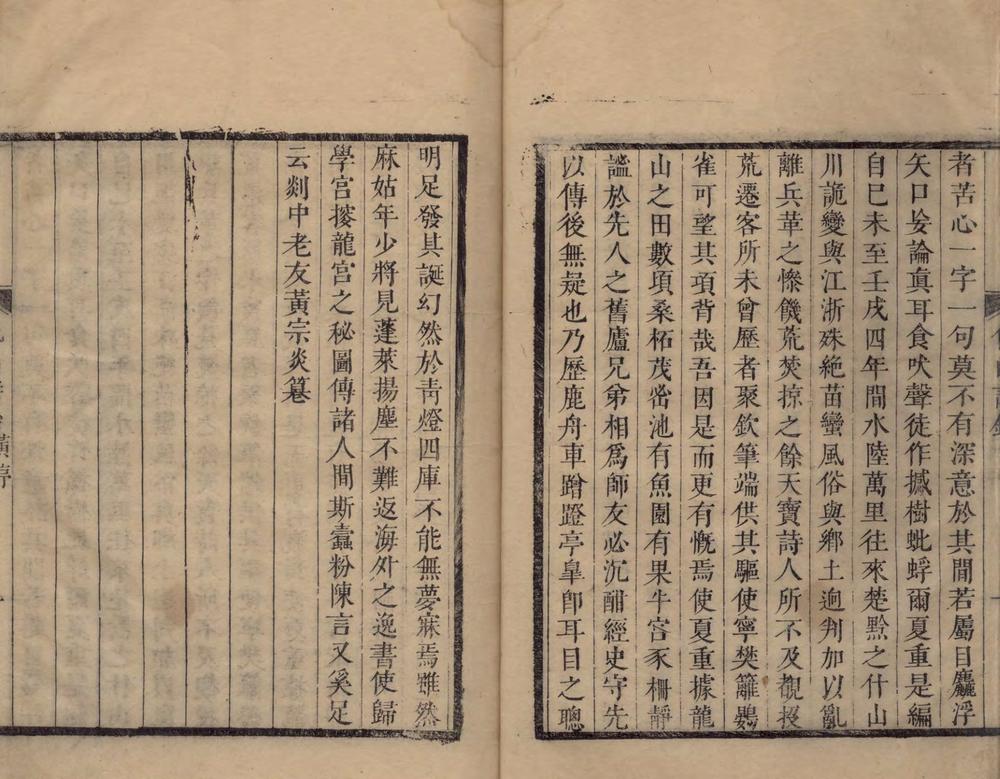 者苦心一字一句莫不有深意於其間若屬目麤浮
矢口妄論眞耳食吠聲徒作撼樹蚍蜉爾夏重是編
自巳未至壬戌四年間水陸萬里往來楚黔之什山
川詭變與江浙殊絶苗蠻風俗與鄉土逈判加以亂
離兵革之慘饑荒焚掠之餘天寶詩人所不及覩投
荒遷客所未曾歷者聚欽筆端供其驅使寧樊籬鷃
雀可望其項背哉吾因是而更有慨焉使夏重據龍
山之田數頃桑柘茂宻池有魚園有果牛宮豕柵靜
謐於先人之舊廬兄弟相爲師友必沉酣經史守先
以傳後無疑也乃歷鹿舟車蹭蹬亭臯卽耳目之聰
明足發其誕幻然於靑燈四庫不能無夢寐焉雖然
麻姑年少將見蓬萊揚塵不難返海外之逸書使歸
學宮摉龍宮之秘圖傳諸人間斯蠧粉陳言又奚足
云剡中老友黃宗炎篹